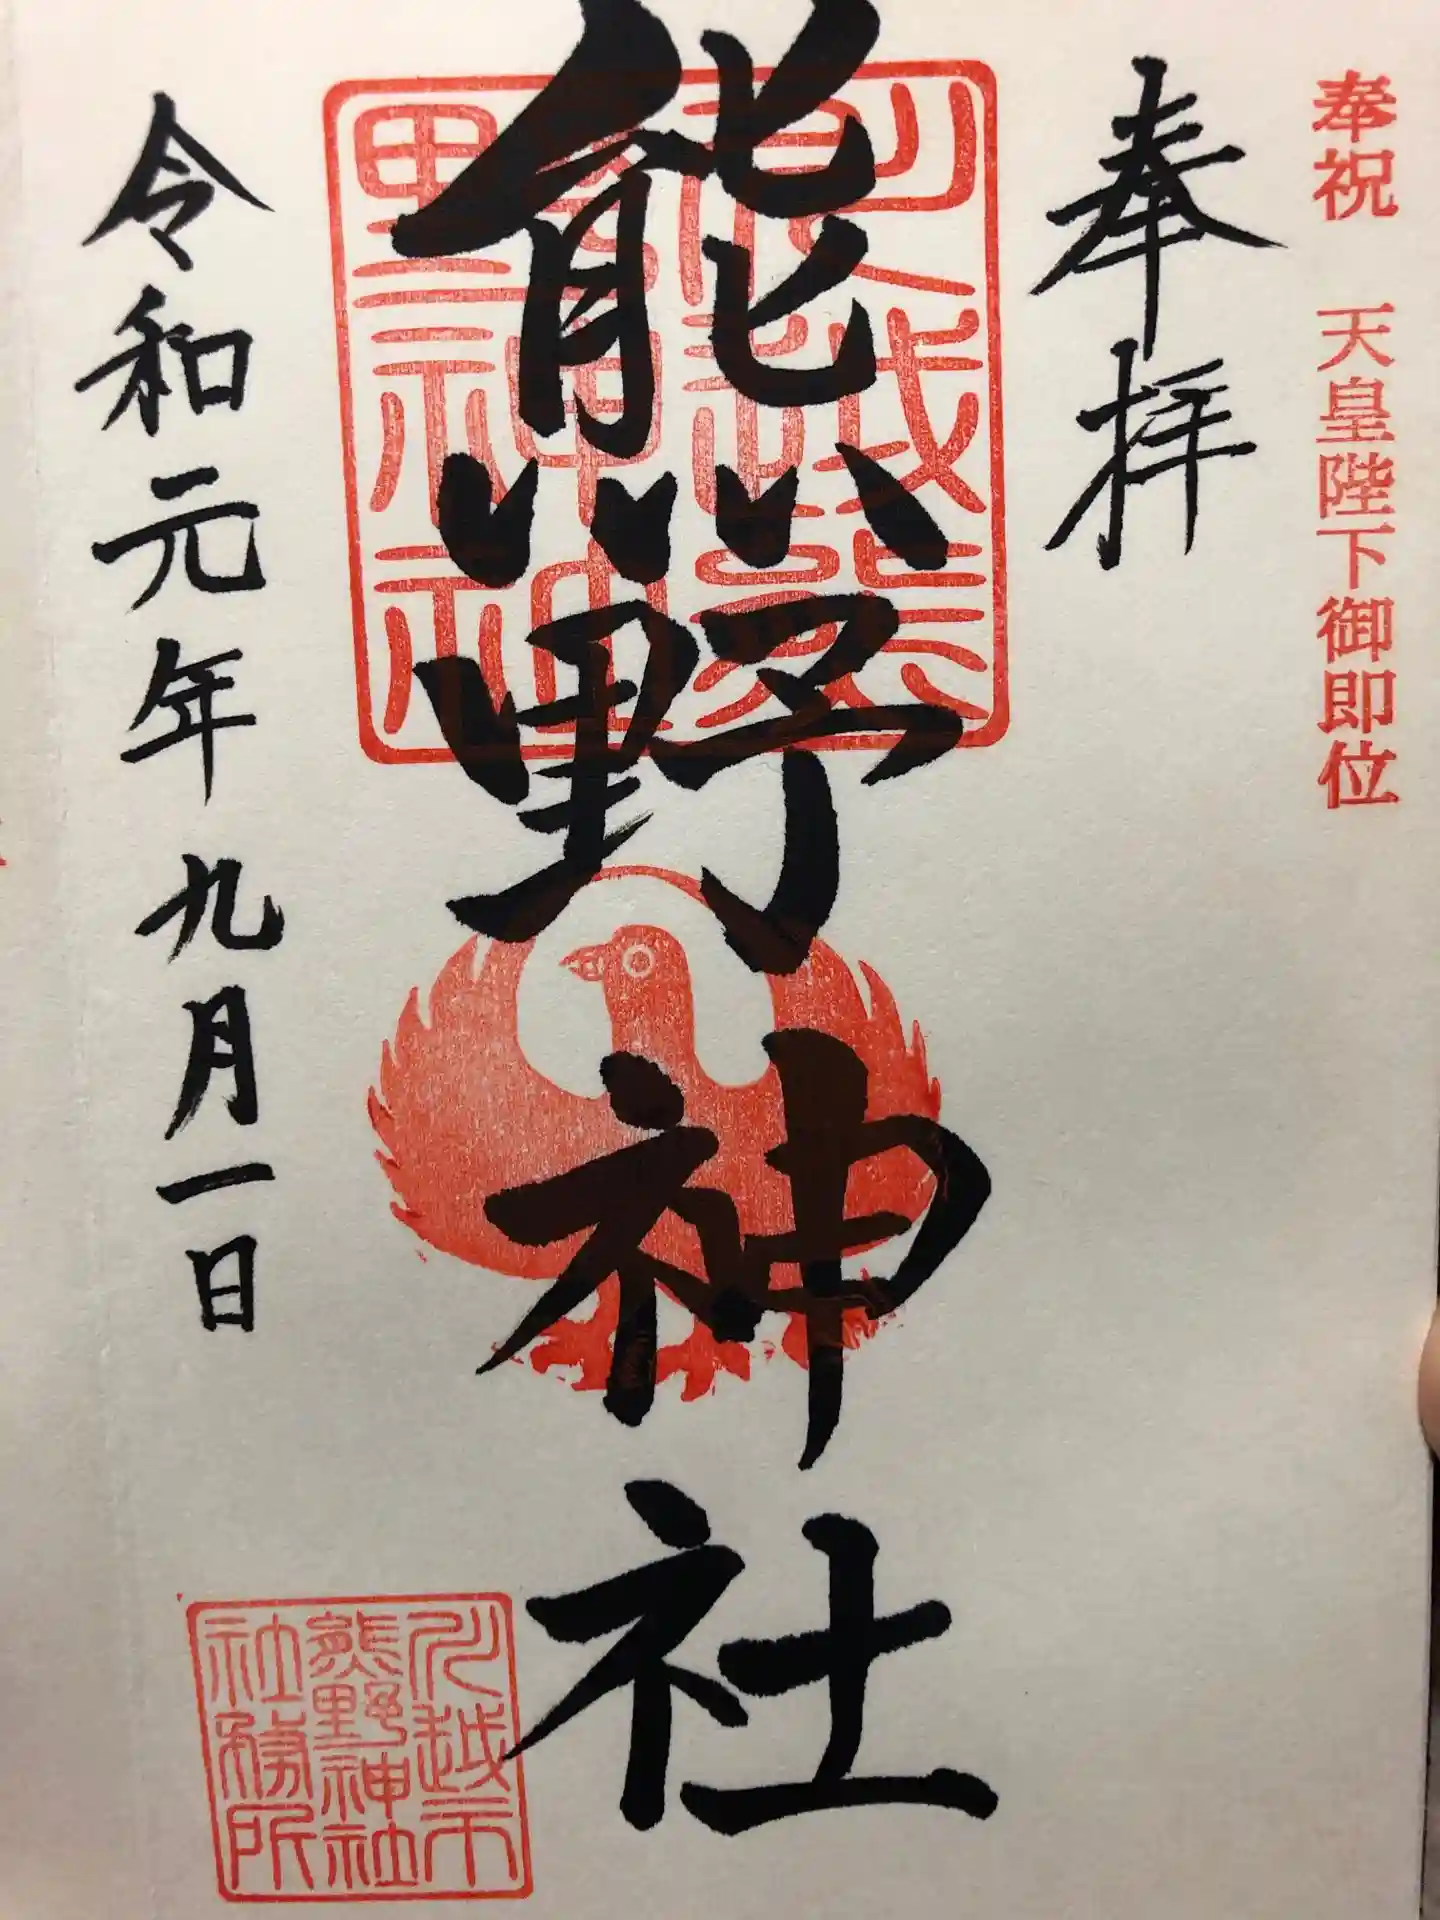 奉祝 天皇陛下御即位
奉拝
熊野神社
令和元年九月一日
川越市
熊野神社
社務所